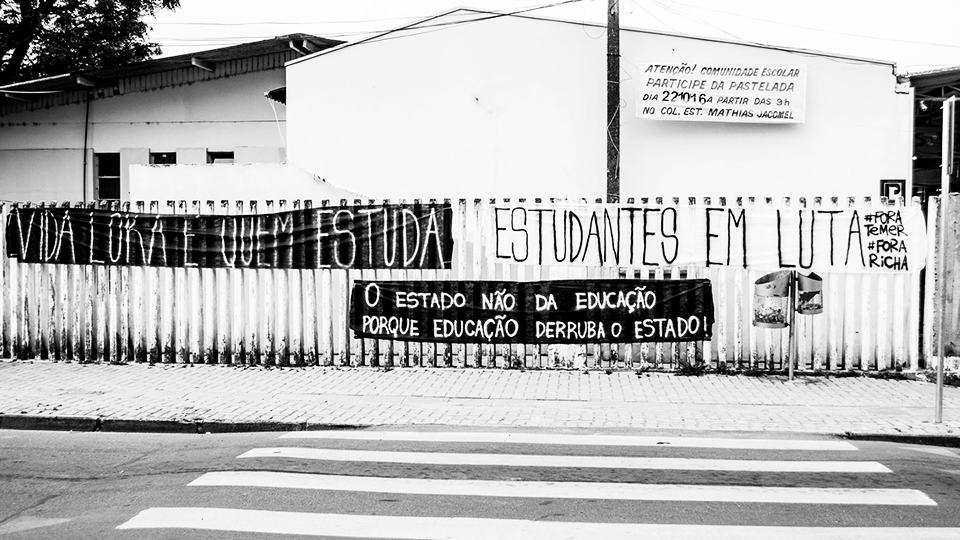 ATENÇÃO! COMUNIDADE ESCOLAR
PARTICIPE DA PASTELADA
DIA 221016 A PARTIR DAS 9h
NO COL. EST. MATHIAS JACOMEL
VIDA LOKA É QUEM ESTUDA
ESTUDANTES EM LUTA
#FORA
TEMER
#FORA
RICHA
O ESTADO NÃO DA EDUCAÇÃO
PORQUE EDUCAÇÃO DERRUBA O ESTADO!